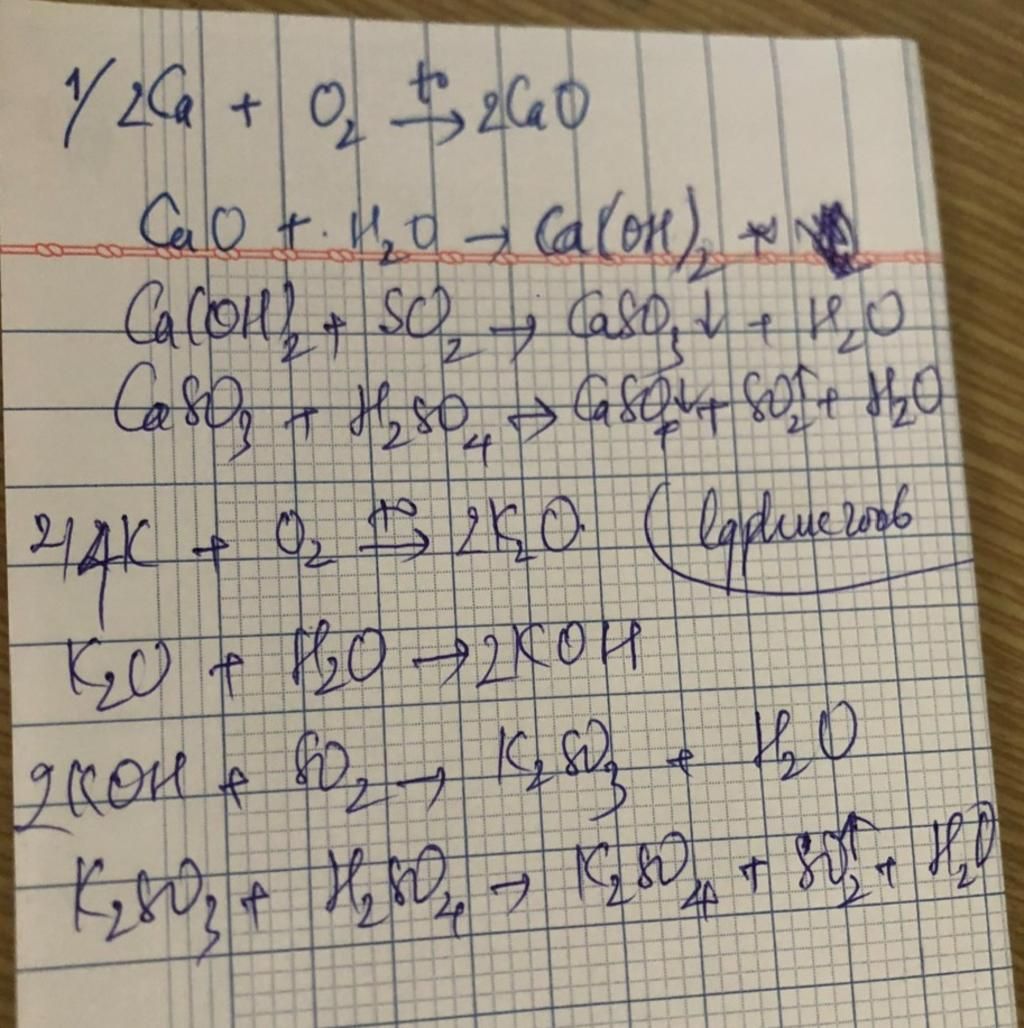 1/ 2Ca + O₂ t° → 2CaO
CaO + H₂O → Ca(OH)₂ +
Ca(OH)₂ + SO₂ → CaSO₃↓ + H₂O
CaSO₃ + H₂SO₄ → CaSO₄↓ + SO₂↑ + H₂O
2/ 4K + O₂ t° → 2K₂O (
K₂O + H₂O → 2KOH
2KOH + SO₂ → K₂SO₃ + H₂O
K₂SO₃ + H₂SO₄ → K₂SO₄ + SO₂↑ + H₂O